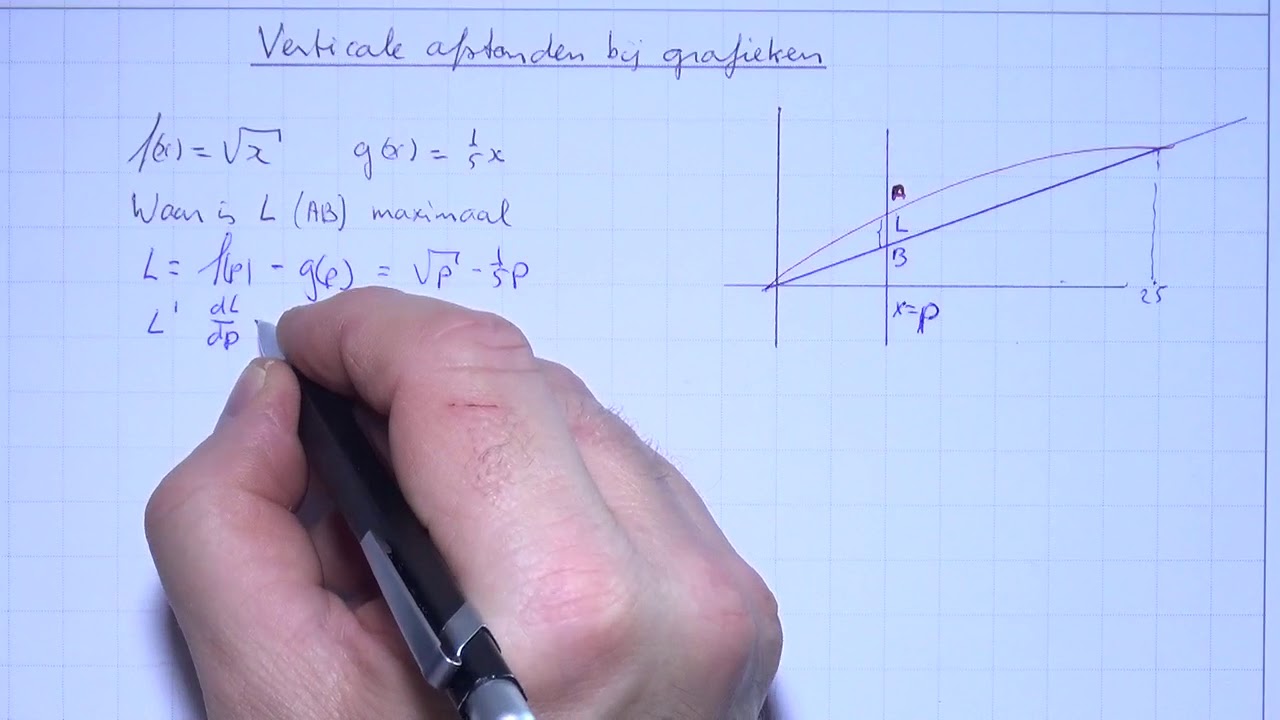 Verticale afstanden bij grafieken
f(x) = √x g(x) = 1/5 x
Waar is L (AB) maximaal
L = f(p) - g(p) = √p - 1/5 p
L' dL/dp
A
L
B
x=p
25